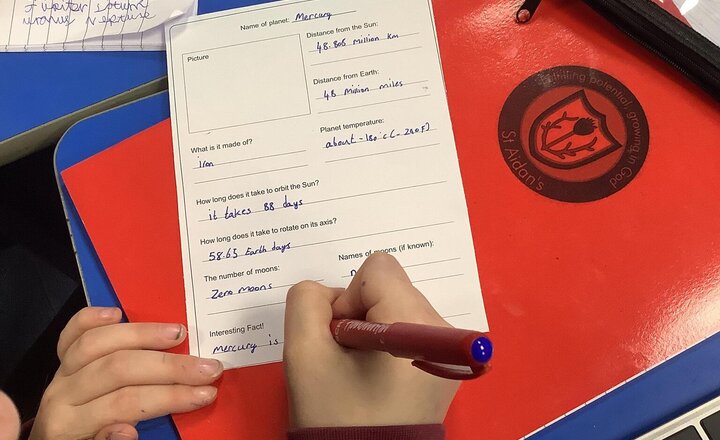 Jupiter Saturn
Uranus Neptune
Name of planet: Mercury
Picture
Distance from the Sun:
48.806 million km
Distance from Earth:
48 million miles
What is it made of?
iron
Planet temperature:
about -180°c (-290F)
How long does it take to orbit the Sun?
it takes 88 days
How long does it take to rotate on its axis?
58.65 Earth days
The number of moons:
Zero moons
Names of moons (if known):
Interesting Fact!
Mercury is
potential, growing in God
St Aidan's